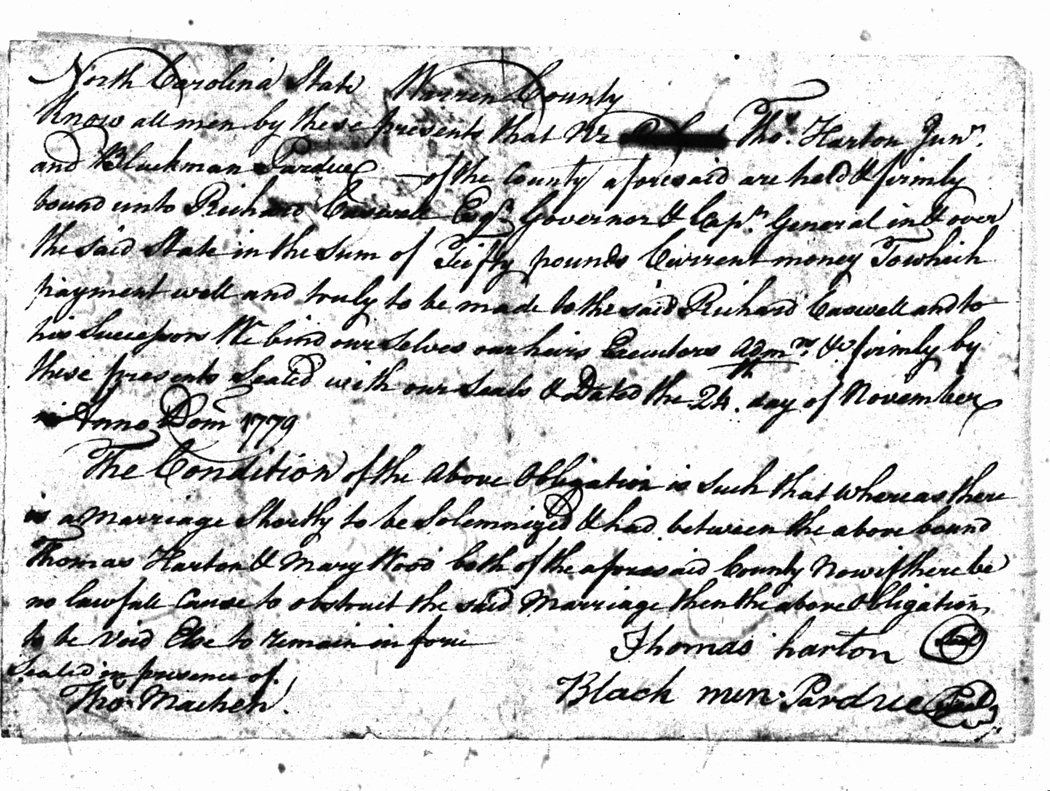 North Carolina State Warren County
Know all men by these presents that We Thos. Harton Junr.
and Blackman Pardue of the County aforesaid are held & firmly
bound unto Richard Caswell Esqr. Governor & Capn. General in & over
the said State in the Sum of fifty pounds Current money To which
payment well and truly to be made to the said Richard Caswell and to
his Successors We bind our selves our heirs Executors Admrs. &c firmly by
these presents Sealed with our Seals & Dated the 24th. day of November
Anno Dom 1779
The Condition of the above Obligation is Such that whereas there
is a Marriage Shortly to be Solemnized & had between the above bound
Thomas Harton & Mary Wood both of the aforesaid County Now if there be
no lawfull Cause to obstruct the said Marriage then the above Obligation
to be Void Else to remain in force
Thomas harton Seal
Sealed in presence of
Tho. Machen
Black men Pardue Seal